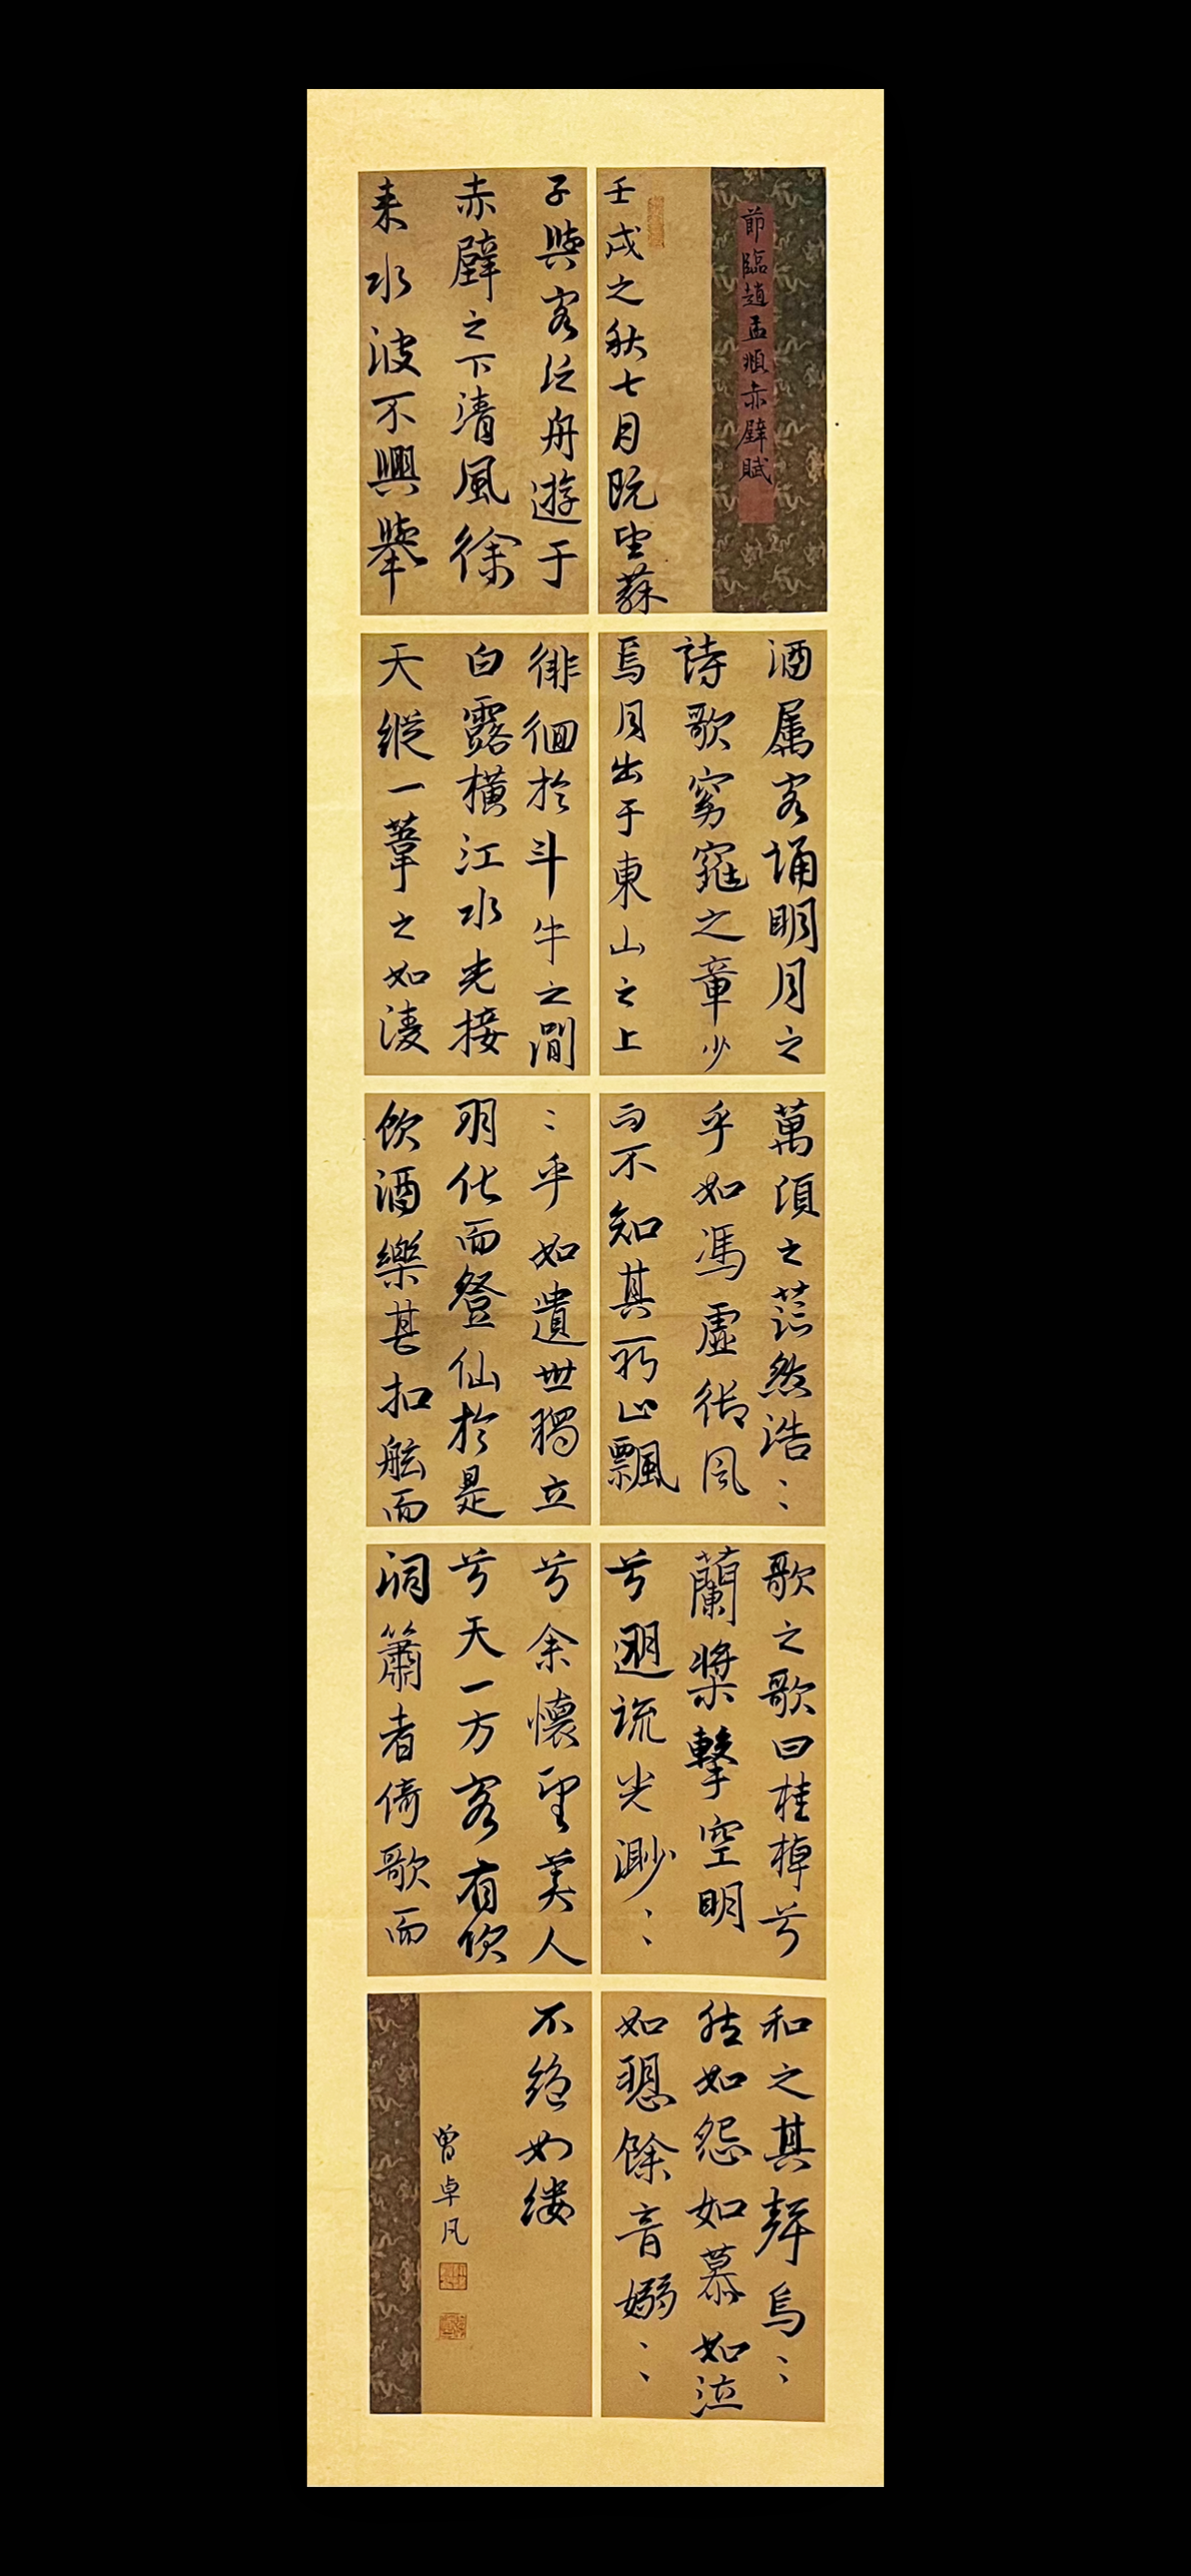 節臨趙孟頫赤壁賦
壬戌之秋七月既望蘇
子與客泛舟遊于
赤壁之下清風徐
来水波不興舉
酒属客誦明月之
詩歌窈窕之章少
焉月出于東山之上
徘徊於斗牛之間
白露橫江水光接
天縱一葦之如淩
萬頃之茫然浩〻
乎如馮虛御風
而不知其所止飄
〻乎如遺世獨立
羽化而登仙於是
飲酒樂甚扣舷而
歌之歌曰桂棹兮
蘭槳擊空明
兮遡流光渺〻
兮余懷望美人
兮天一方客有吹
洞簫者倚歌而
和之其聲烏〻
然如怨如慕如泣
如愬餘音嫋〻
不絕如縷
曾卓凡